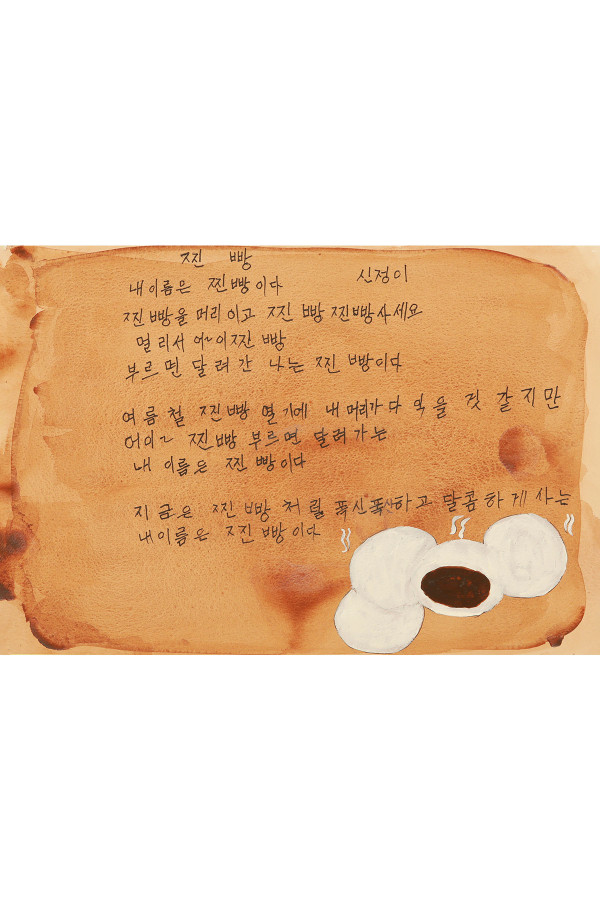 찐 빵
신정이
내이름은 찐빵이다
찐빵을 머리이고 찐 빵 찐빵사세요
멀리서 어~이 찐 빵
부르면 달려 간 나는 찐 빵이다
여름 철 찐빵 열기에 내 머리가 다 익을 것 같지만
어이~ 찐빵 부르면 달려가는
내 이름은 찐 빵이다
지금은 찐 빵 처럼 푹신푹신하고 달콤하게 사는
내이름은 찐빵이다